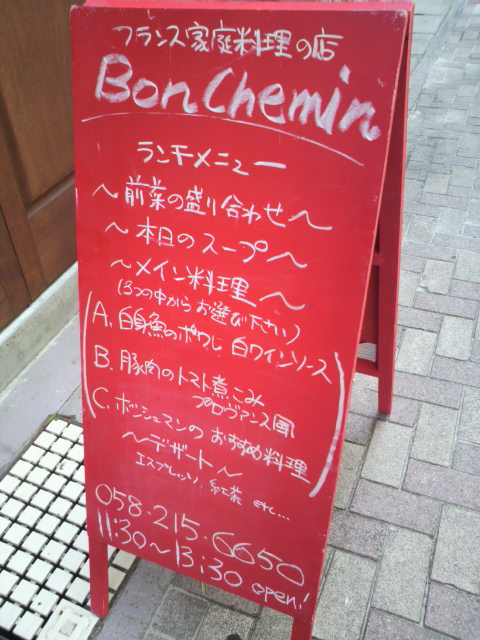 フランス家庭料理の店
Bon Chemin
ランチメニュー
～前菜の盛り合わせ～
～本日のスープ～
～メイン料理～
(3つの中からお選び下さい)
A. 白身魚のポワレ 白ワインソース
B. 豚肉のトマト煮こみ
プロヴァンス風
C. ボッシュマンのおすすめ料理
～デザート～
エスプレッソ・紅茶 etc...
058.215.6650
11:30～13:30 open!